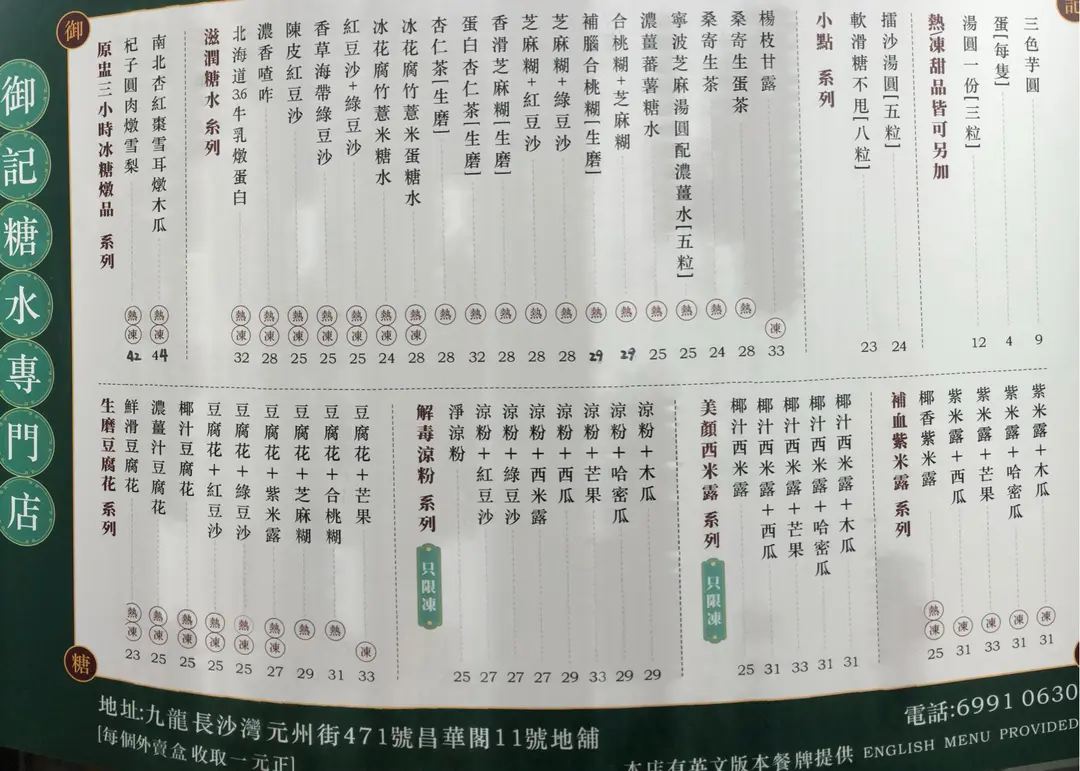 御記糖水專門店
御
記
糖
原盅三小時冰糖燉品 系列
杞子圓肉燉雪梨 熱 凍 42
南北杏紅棗雪耳燉木瓜 熱 凍 44
滋潤糖水 系列
北海道3.6牛乳燉蛋白 熱 凍 32
濃香喳咋 熱 凍 28
陳皮紅豆沙 熱 凍 25
香草海帶綠豆沙 熱 凍 25
紅豆沙+綠豆沙 熱 凍 25
冰花腐竹薏米糖水 熱 凍 24
冰花腐竹薏米蛋糖水 熱 凍 28
杏仁茶[生磨] 熱 28
蛋白杏仁茶[生磨] 熱 32
香滑芝麻糊[生磨] 熱 28
芝麻糊+紅豆沙 熱 28
芝麻糊+綠豆沙 熱 28
補腦合桃糊[生磨] 熱 29
合桃糊+芝麻糊 熱 29
濃薑蕃薯糖水 熱 25
寧波芝麻湯圓配濃薑水[五粒] 熱 25
桑寄生茶 熱 24
桑寄生蛋茶 熱 28
楊枝甘露 凍 33
小點 系列
軟滑糖不甩[八粒] 23
擂沙湯圓[五粒] 24
熱凍甜品皆可另加
湯圓一份[三粒] 12
蛋[每隻] 4
三色芋圓 9
生磨豆腐花 系列
鮮滑豆腐花 熱 凍 23
濃薑汁豆腐花 熱 凍 25
椰汁豆腐花 熱 凍 25
豆腐花+紅豆沙 熱 凍 25
豆腐花+綠豆沙 熱 凍 25
豆腐花+紫米露 熱 凍 27
豆腐花+芝麻糊 熱 29
豆腐花+合桃糊 熱 31
豆腐花+芒果 凍 33
解毒涼粉 系列 只限凍
淨涼粉 25
涼粉+紅豆沙 27
涼粉+綠豆沙 27
涼粉+西米露 27
涼粉+西瓜 29
涼粉+芒果 33
涼粉+哈密瓜 29
涼粉+木瓜 29
美顏西米露 系列 只限凍
椰汁西米露 25
椰汁西米露+西瓜 31
椰汁西米露+芒果 33
椰汁西米露+哈密瓜 31
椰汁西米露+木瓜 31
補血紫米露 系列
椰香紫米露 熱 凍 25
紫米露+西瓜 凍 31
紫米露+芒果 凍 33
紫米露+哈密瓜 凍 31
紫米露+木瓜 凍 31
地址:九龍長沙灣元州街471號昌華閣11號地舖
電話:6991 0630
[每個外賣盒收取一元正]
本店有英文版本餐牌提供 ENGLISH MENU PROVIDED